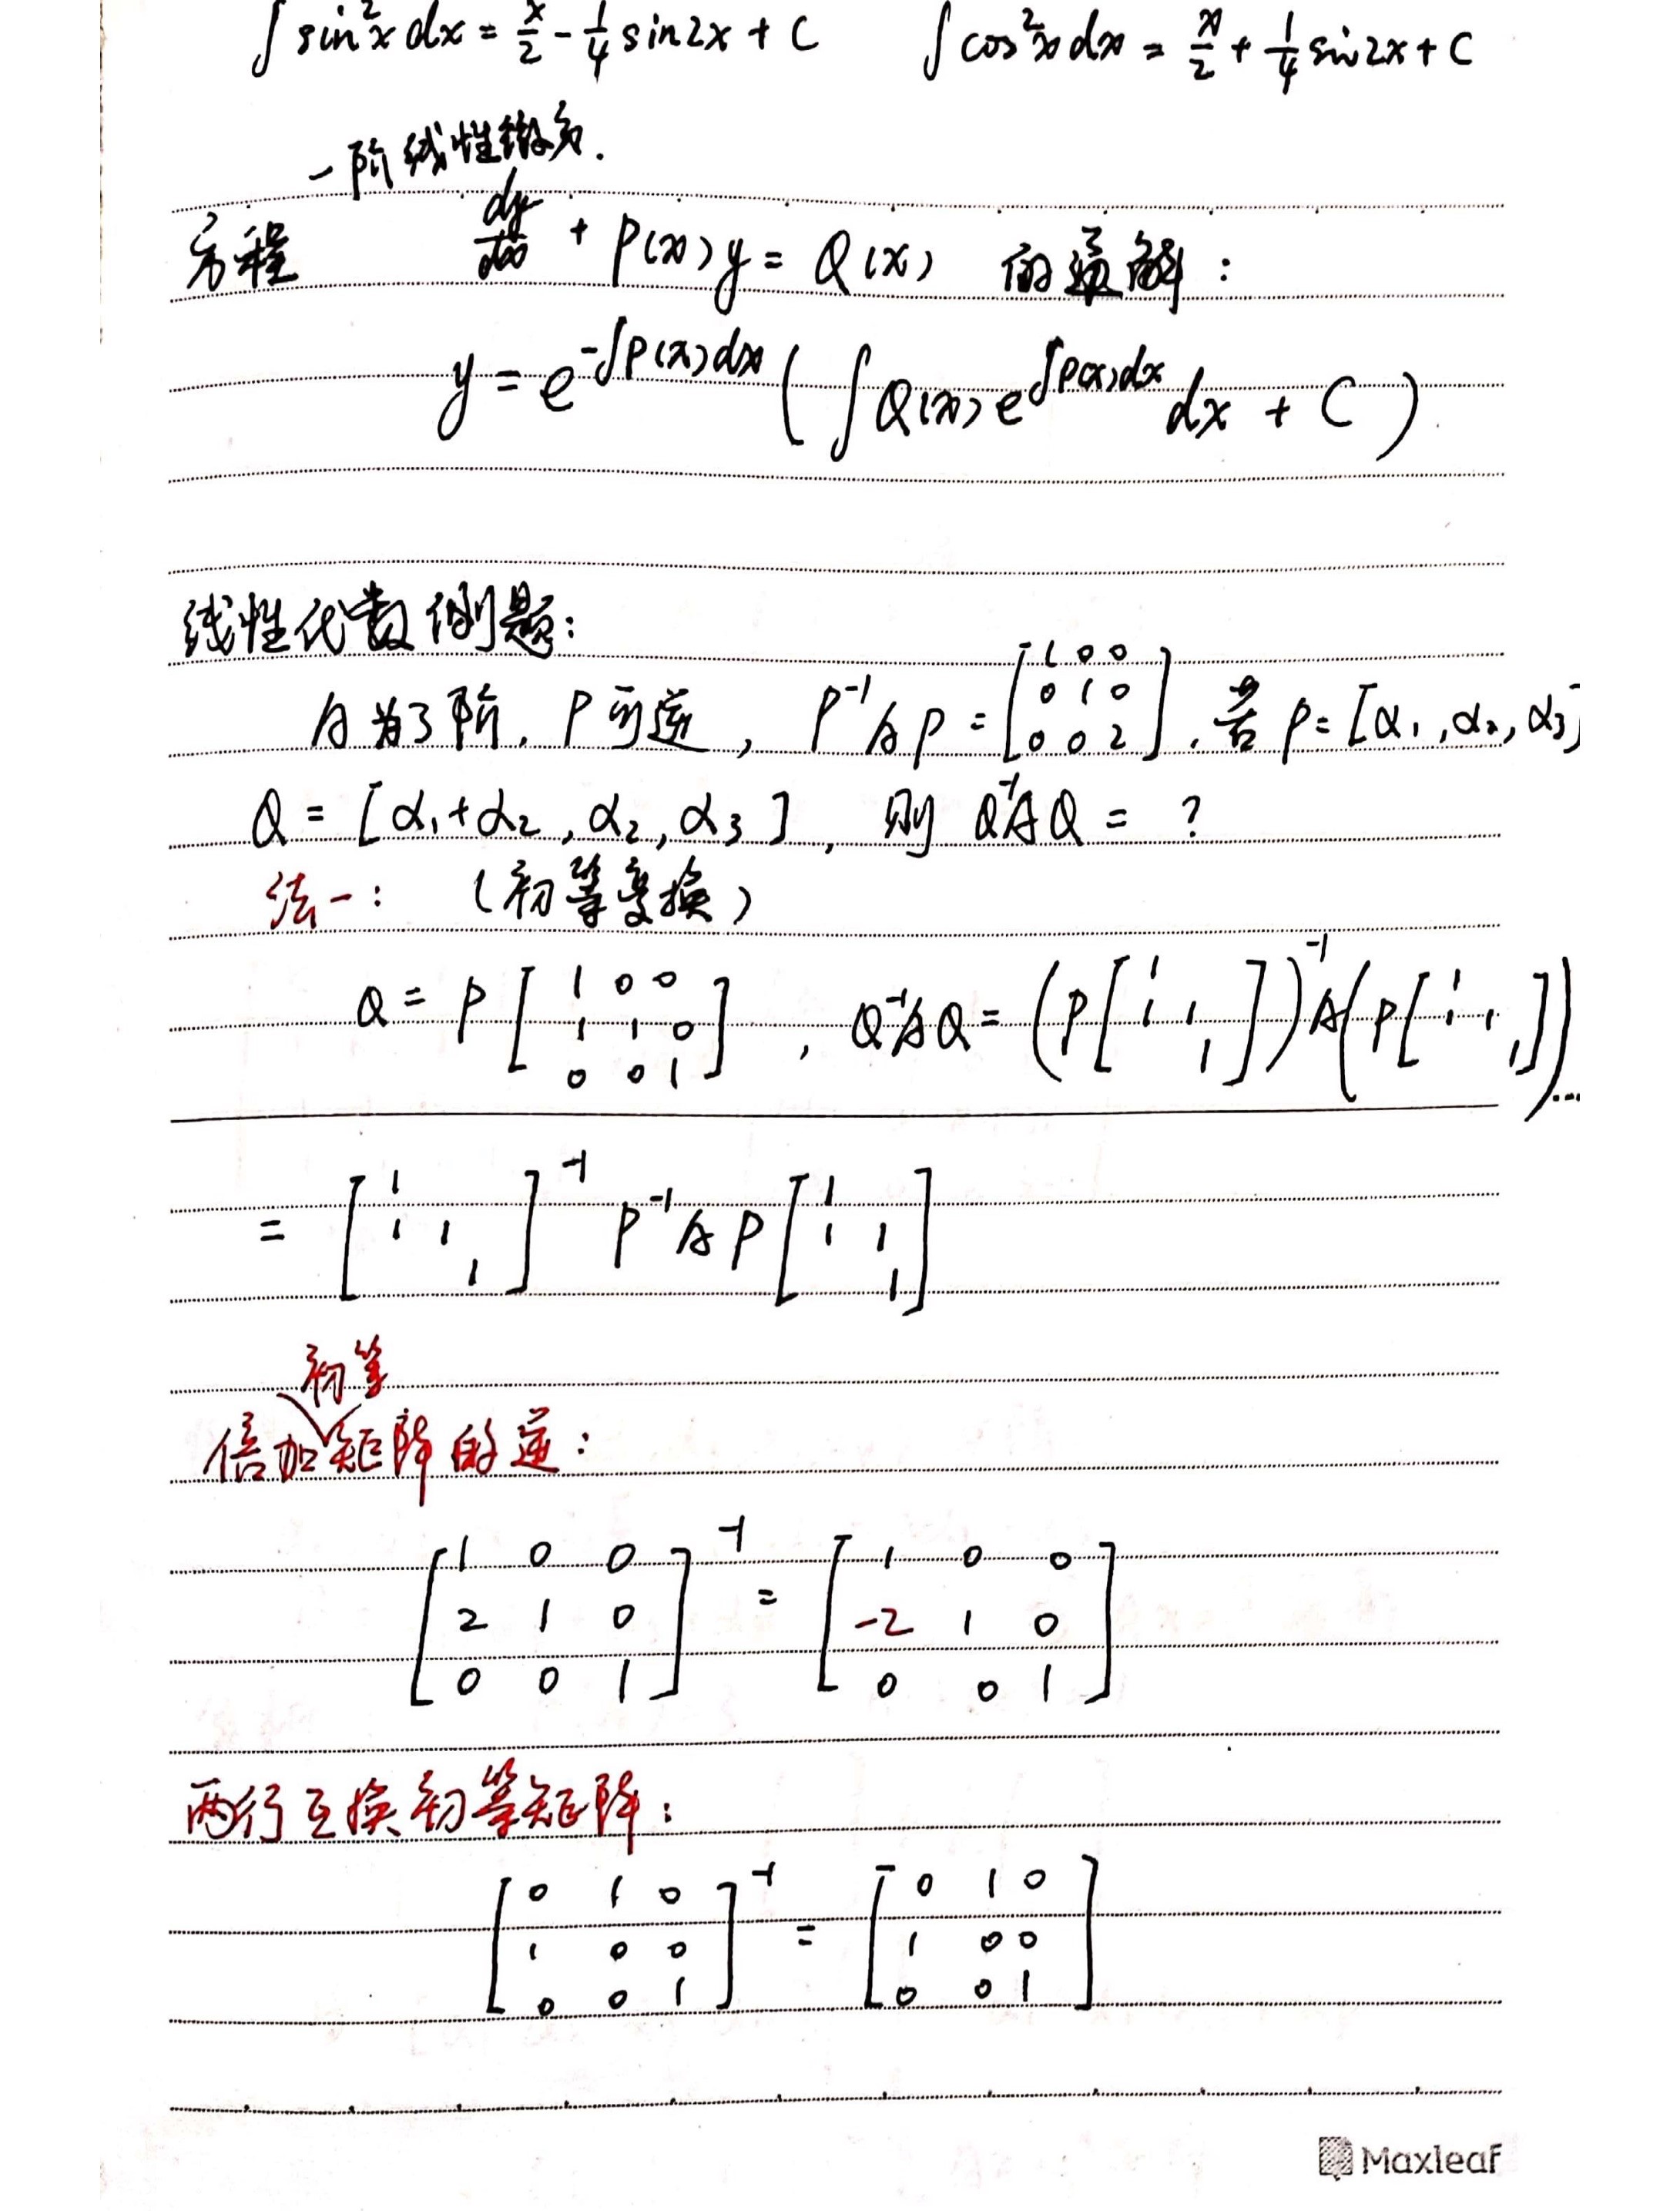 ∫ sin²x dx = x/2 - 1/4 sin2x + C  ∫ cos²x dx = x/2 + 1/4 sin2x + C
一阶线性微分.
方程 dy/dx + P(x)y = Q(x) 的通解:
y = e^{-∫P(x)dx} ( ∫Q(x)e^{∫P(x)dx} dx + C ).
线性代数例题:
A为3阶, P可逆, P⁻¹AP = [1 0 0; 0 1 0; 0 0 2], 若 P = [α₁, α₂, α₃]
Q = [α₁+α₂, α₂, α₃], 则 Q⁻¹AQ = ?
法一: (初等变换)
Q = P [1 0 0; 1 1 0; 0 0 1], Q⁻¹AQ = (P[1; 1 1; 1])⁻¹ A (P[1; 1 1; 1])...
= [1; 1 1; 1]⁻¹ P⁻¹AP [1; 1 1; 1]
初等
倍加矩阵的逆:
[1 0 0; 2 1 0; 0 0 1]⁻¹ = [1 0 0; -2 1 0; 0 0 1]
两行互换初等矩阵:
[0 1 0; 1 0 0; 0 0 1]⁻¹ = [0 1 0; 1 0 0; 0 0 1]
Maxleaf